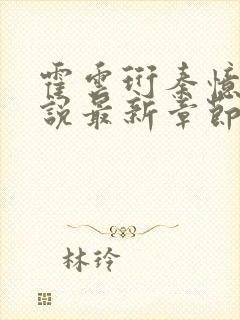 霍雲衍秦憶
說最新章節
林玲